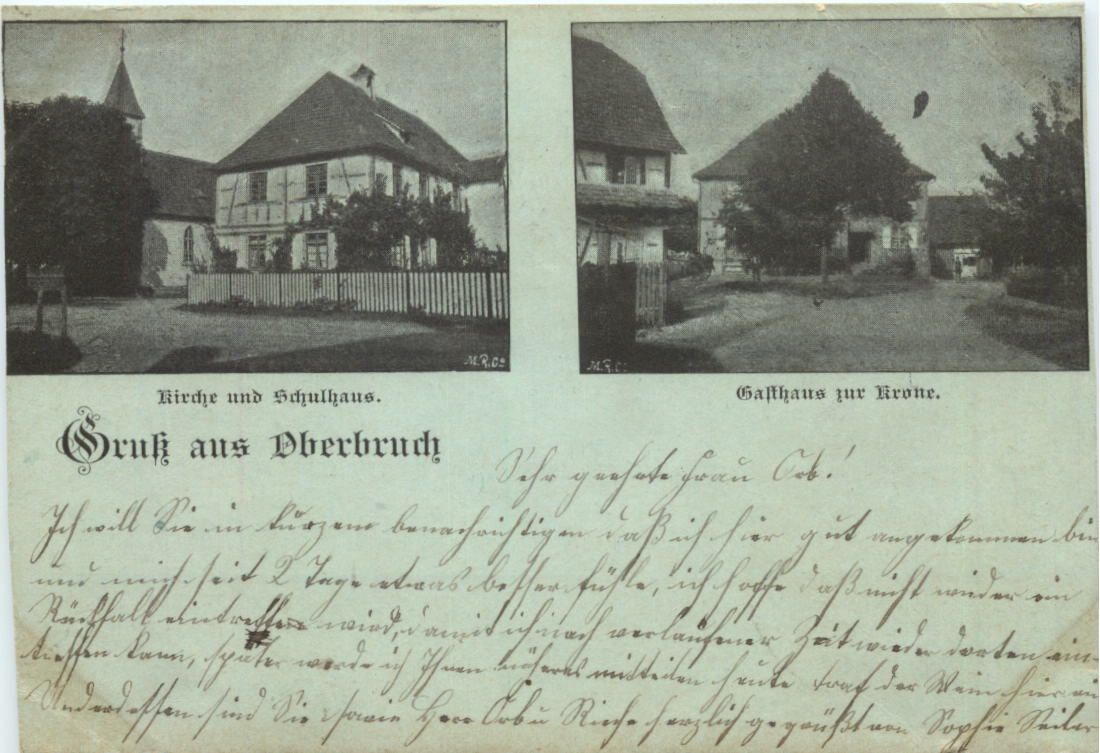 M.R.Co
M.R.Co
Kirche und Schulhaus.
Gasthaus zur Krone.
Gruß aus Oberbruch
Sehr geehrte Frau Orb!
Ich will Sie in kurzem benachrichtigen daß ich hier gut angekommen bin
und mich seit 2 Tage etwas besser fühle, ich hoffe daß nicht wieder ein
Rückfall eintreffen wird, damit ich nach verlaufener Zeit wieder dorten ein-
treffen kann, später werde ich Ihnen näheres mitteilen heute traf der Wein hier ein
Underdessen sind Sie sowie Herr Orb u herzlich gegrüßt von Sophie Seiler